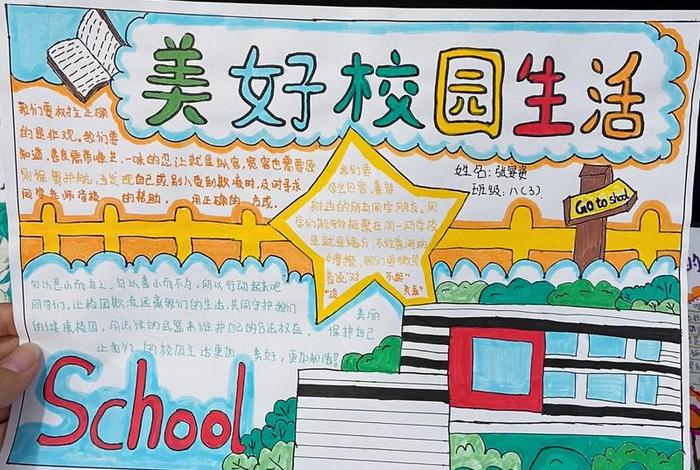 美好校园生活
我们要树立正确
的是非观。我们要
知道,善良需带锋芒,一味的忍让就是纵容,宽容也需要原
则保驾护航,当发现自己或别人受到欺凌时,及时寻求
同学老师学校的帮助,用正确的方式。
我们要
学会包容,善待
身边的所有同学朋友。同
学们能够相聚在同一所学校
里就是缘分,不经意间的
小摩擦,我们要微笑
着说"对不起"
"没关系"
姓名:
班级:八(3)
Go to school
勿以恶小而为之,勿以善小而不为,所以行动起来吧
同学们。让校园欺凌远离我们的生活,共同守护我们
的健康校园,用法律的武器来维护自己的合法权益,保护自己
美丽
让我们的校园生活更加美好,更加和谐!
School